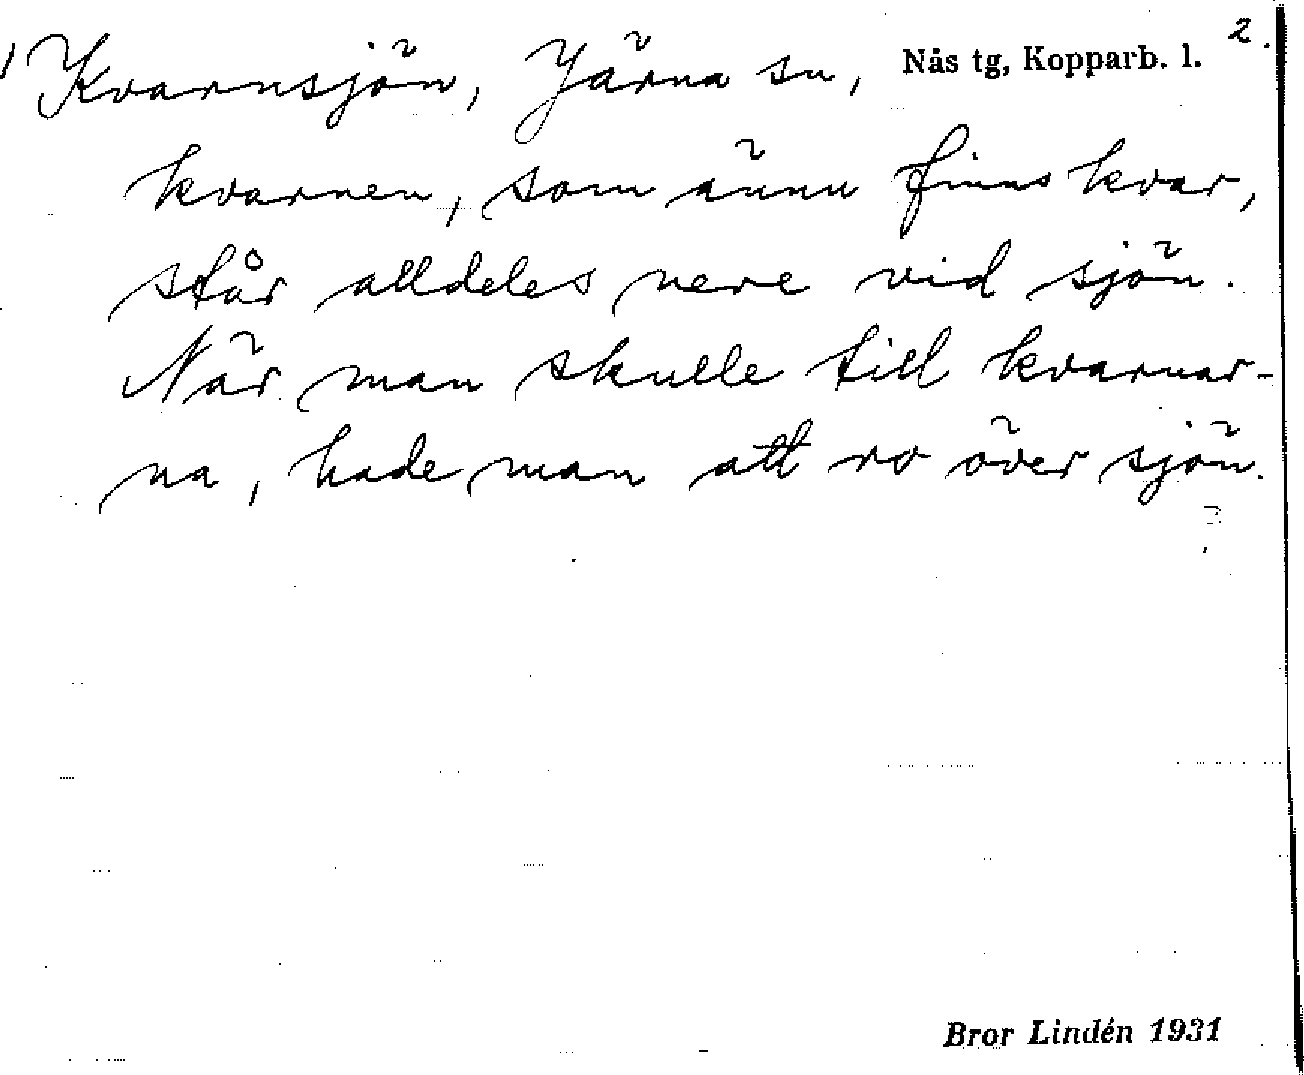 2.
Kvarnsjön, Järna sn, Nås tg, Kopparb. l.
kvarnen, som ännu finns kvar,
står alldeles nere vid sjön.
När man skulle till kvarnar-
na, hade man att ro över sjön.
Bror Lindén 1931